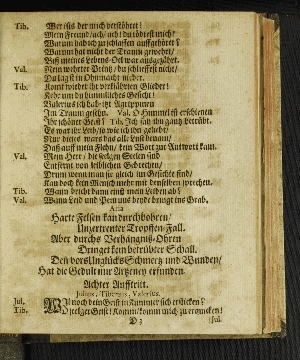 Tib. Wer ists der mich verstöhret?
Mein Freund/ach/ach! du tödtest mich?
Warum hab ich zu schlaffen auffgehöret?
Warum hat nicht der Traum gewehret/
Biß meines Lebens-Oel war ausgezährt.
Val. Mein wehrter Printz/du schlieffest nicht/
Du lagst in Ohnmacht nieder.
Tib. Komt wieder ihr verklährten Glieder!
Kehr um du himmlisches Gesicht!
Valerius ich hab itzt Agrippinen
Im Traum gesehn. Val. O Himmel ist erschienen
Ihr schöner Geist? Tib. Ich sah ihn gantz betrübt.
Es war ihr Leib/so wie ich ihn geliebt/
Nur dieses war das alle Lust benam/
Daß auff mein Flehn/kein Wort zur Antwort kam.
Val. Mein Herr/die seelgen Seelen sind
Entfernt von leiblichen Gebrechen/
Drum wenn man sie gleich im Gesichte find/
Kan doch kein Mensch mehr mit denselben sprechen.
Tib. Wann bricht dann einst mein Leiden ab?
Val. Wann Leid und Pein uns beyde bringt ins Grab.
Aria
Harte Felsen kan durchbohren/
Unzertrenter Tropffen-Fall.
Aber durchs Verhängnüß-Ohren
Dringet kein betrübter Schall.
Den vors Unglücks Schmertz und Wunden/
Hat die Gedult nur Artzeney erfunden.
Achter Aufftritt.
Julius, Tiberius, Valerius.
Jul. Wil noch dein Geist in Kummer sich ersticken?
Tib. O seelger Geist! Komm/komm mich zu erquicken!
D 3 Jul.